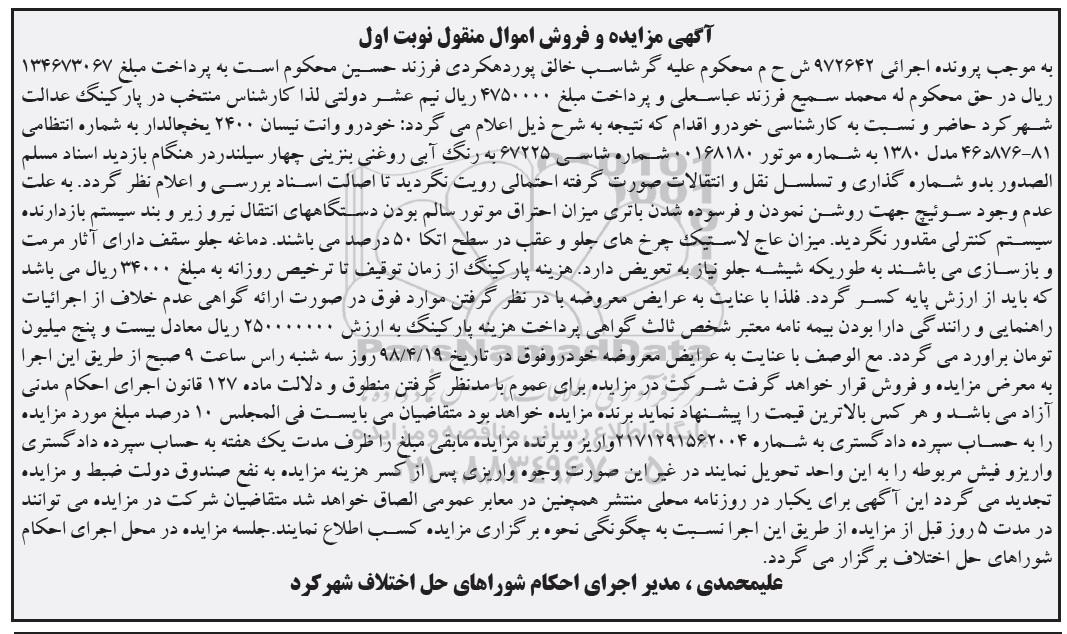 آگهی مزایده و فروش اموال منقول نوبت اول
به موجب پرونده اجرائی ۹۷۲۶۴۲ ش ح م محکوم علیه گرشاسب خالق پوردهکردی فرزند حسین محکوم است به پرداخت مبلغ ۱۳۴۶۷۳۰۶۷
ریال در حق محکوم له محمد سمیع فرزند عباسعلی و پرداخت مبلغ ۴۷۵۰۰۰۰ ریال نیم عشر دولتی لذا کارشناس منتخب در پارکینگ عدالت
شهرکرد حاضر و نسبت به کارشناسی خودرو اقدام که نتیجه به شرح ذیل اعلام می گردد: خودرو وانت نیسان ۲۴۰۰ یخچالدار به شماره انتظامی
۸۱-۸۷۶د۴۶ مدل ۱۳۸۰ به شماره موتور ۰۰۱۶۸۱۸۰ شماره شاسی ۶۷۲۲۵ به رنگ آبی روغنی بنزینی چهار سیلندردر هنگام بازدید اسناد مسلم
الصدور بدو شماره گذاری و تسلسل نقل و انتقالات صورت گرفته احتمالی رویت نگردید تا اصالت اسناد بررسی و اعلام نظر گردد. به علت
عدم وجود سوئیچ جهت روشن نمودن و فرسوده شدن باتری میزان احتراق موتور سالم بودن دستگاههای انتقال نیرو زیر و بند سیستم بازدارنده
سیستم کنترلی مقدور نگردید. میزان عاج لاستیک چرخ های جلو و عقب در سطح اتکا ۵۰ درصد می باشند. دماغه جلو سقف دارای آثار مرمت
و بازسازی می باشند به طوریکه شیشه جلو نیاز به تعویض دارد. هزینه پارکینگ از زمان توقیف تا ترخیص روزانه به مبلغ ۳۴۰۰۰ ریال می باشد
که باید از ارزش پایه کسر گردد. فلذا با عنایت به عرایض معروضه با در نظر گرفتن موارد فوق در صورت ارائه گواهی عدم خلاف از اجرائیات
راهنمایی و رانندگی دارا بودن بیمه نامه معتبر شخص ثالث گواهی پرداخت هزینه پارکینگ به ارزش ۲۵۰۰۰۰۰۰۰ ریال معادل بیست و پنج میلیون
تومان براورد می گردد. مع الوصف با عنایت به عرایض معروضه خودروفوق در تاریخ ۹۸/۴/۱۹ روز سه شنبه راس ساعت ۹ صبح از طریق این اجرا
به معرض مزایده و فروش قرار خواهد گرفت شرکت در مزایده برای عموم با مدنظر گرفتن منطوق و دلالت ماده ۱۲۷ قانون اجرای احکام مدنی
آزاد می باشد و هر کس بالاترین قیمت را پیشنهاد نماید برنده مزایده خواهد بود متقاضیان می بایست فی المجلس ۱۰ درصد مبلغ مورد مزایده
را به حساب سپرده دادگستری به شماره ۲۱۷۱۲۹۱۵۶۲۰۰۴واریز و برنده مزایده مابقی مبلغ را ظرف مدت یک هفته به حساب سپرده دادگستری
واریزو فیش مربوطه را به این واحد تحویل نمایند در غیر این صورت وجوه واریزی پس از کسر هزینه مزایده به نفع صندوق دولت ضبط و مزایده
تجدید می گردد این آگهی برای یکبار در روزنامه محلی منتشر همچنین در معابر عمومی الصاق خواهد شد متقاضیان شرکت در مزایده می توانند
در مدت ۵ روز قبل از مزایده از طریق این اجرا نسبت به چگونگی نحوه برگزاری مزایده کسب اطلاع نمایند.جلسه مزایده در محل اجرای احکام
شوراهای حل اختلاف برگزار می گردد.
علیمحمدی ، مدیر اجرای احکام شوراهای حل اختلاف شهرکرد